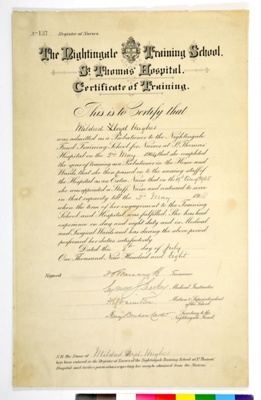 No 137 Register of Nurses
The Nightingale Training School.
St Thomas' Hospital.
Certificate of Training.
This is to Certify that
Mildred Lloyd Hughes
was admitted as a Probationer to the Nightingale
Fund Training School for Nurses at St Thomas'
Hospital on the 2nd May 1904 that she completed
the year of training as a Probationer in the Home and
Wards that she then passed on to the nursing staff of
the Hospital as an Extra Nurse that on the May 1905
she was appointed a Staff Nurse and continued to serve
in that capacity till the 2nd May
when the term of her engagement to the Training
School and Hospital was fulfilled. She has had
experience on day and night duty and in Medical
and Surgical Wards and has during the above period
performed her duties satisfactorily.
Dated this day of July
One Thousand Nine Hundred and Eight
Signed Treasurer
Medical Instructor
Matron & Superintendent
of the School
Henry Bonham Carter Secretary to the
Nightingale Fund
N.B. The Name of Mildred Lloyd Hughes
has been entered in the Register of Nurses of the Nightingale Training School at St Thomas'
Hospital and further particulars respecting her may be obtained from the Matron.